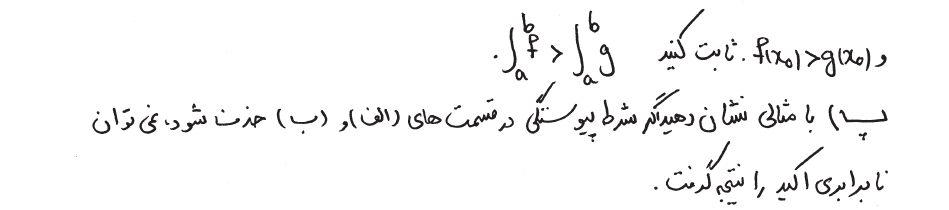 و f(x₀) > g(x₀). ثابت کنید ∫ₐᵇ f > ∫ₐᵇ g.
پ) با مثالی نشان دهید اگر شرط پیوستگی در قسمت های (الف) و (ب) حذف شود، نمی توان
نابرابری اکید را نتیجه گرفت.